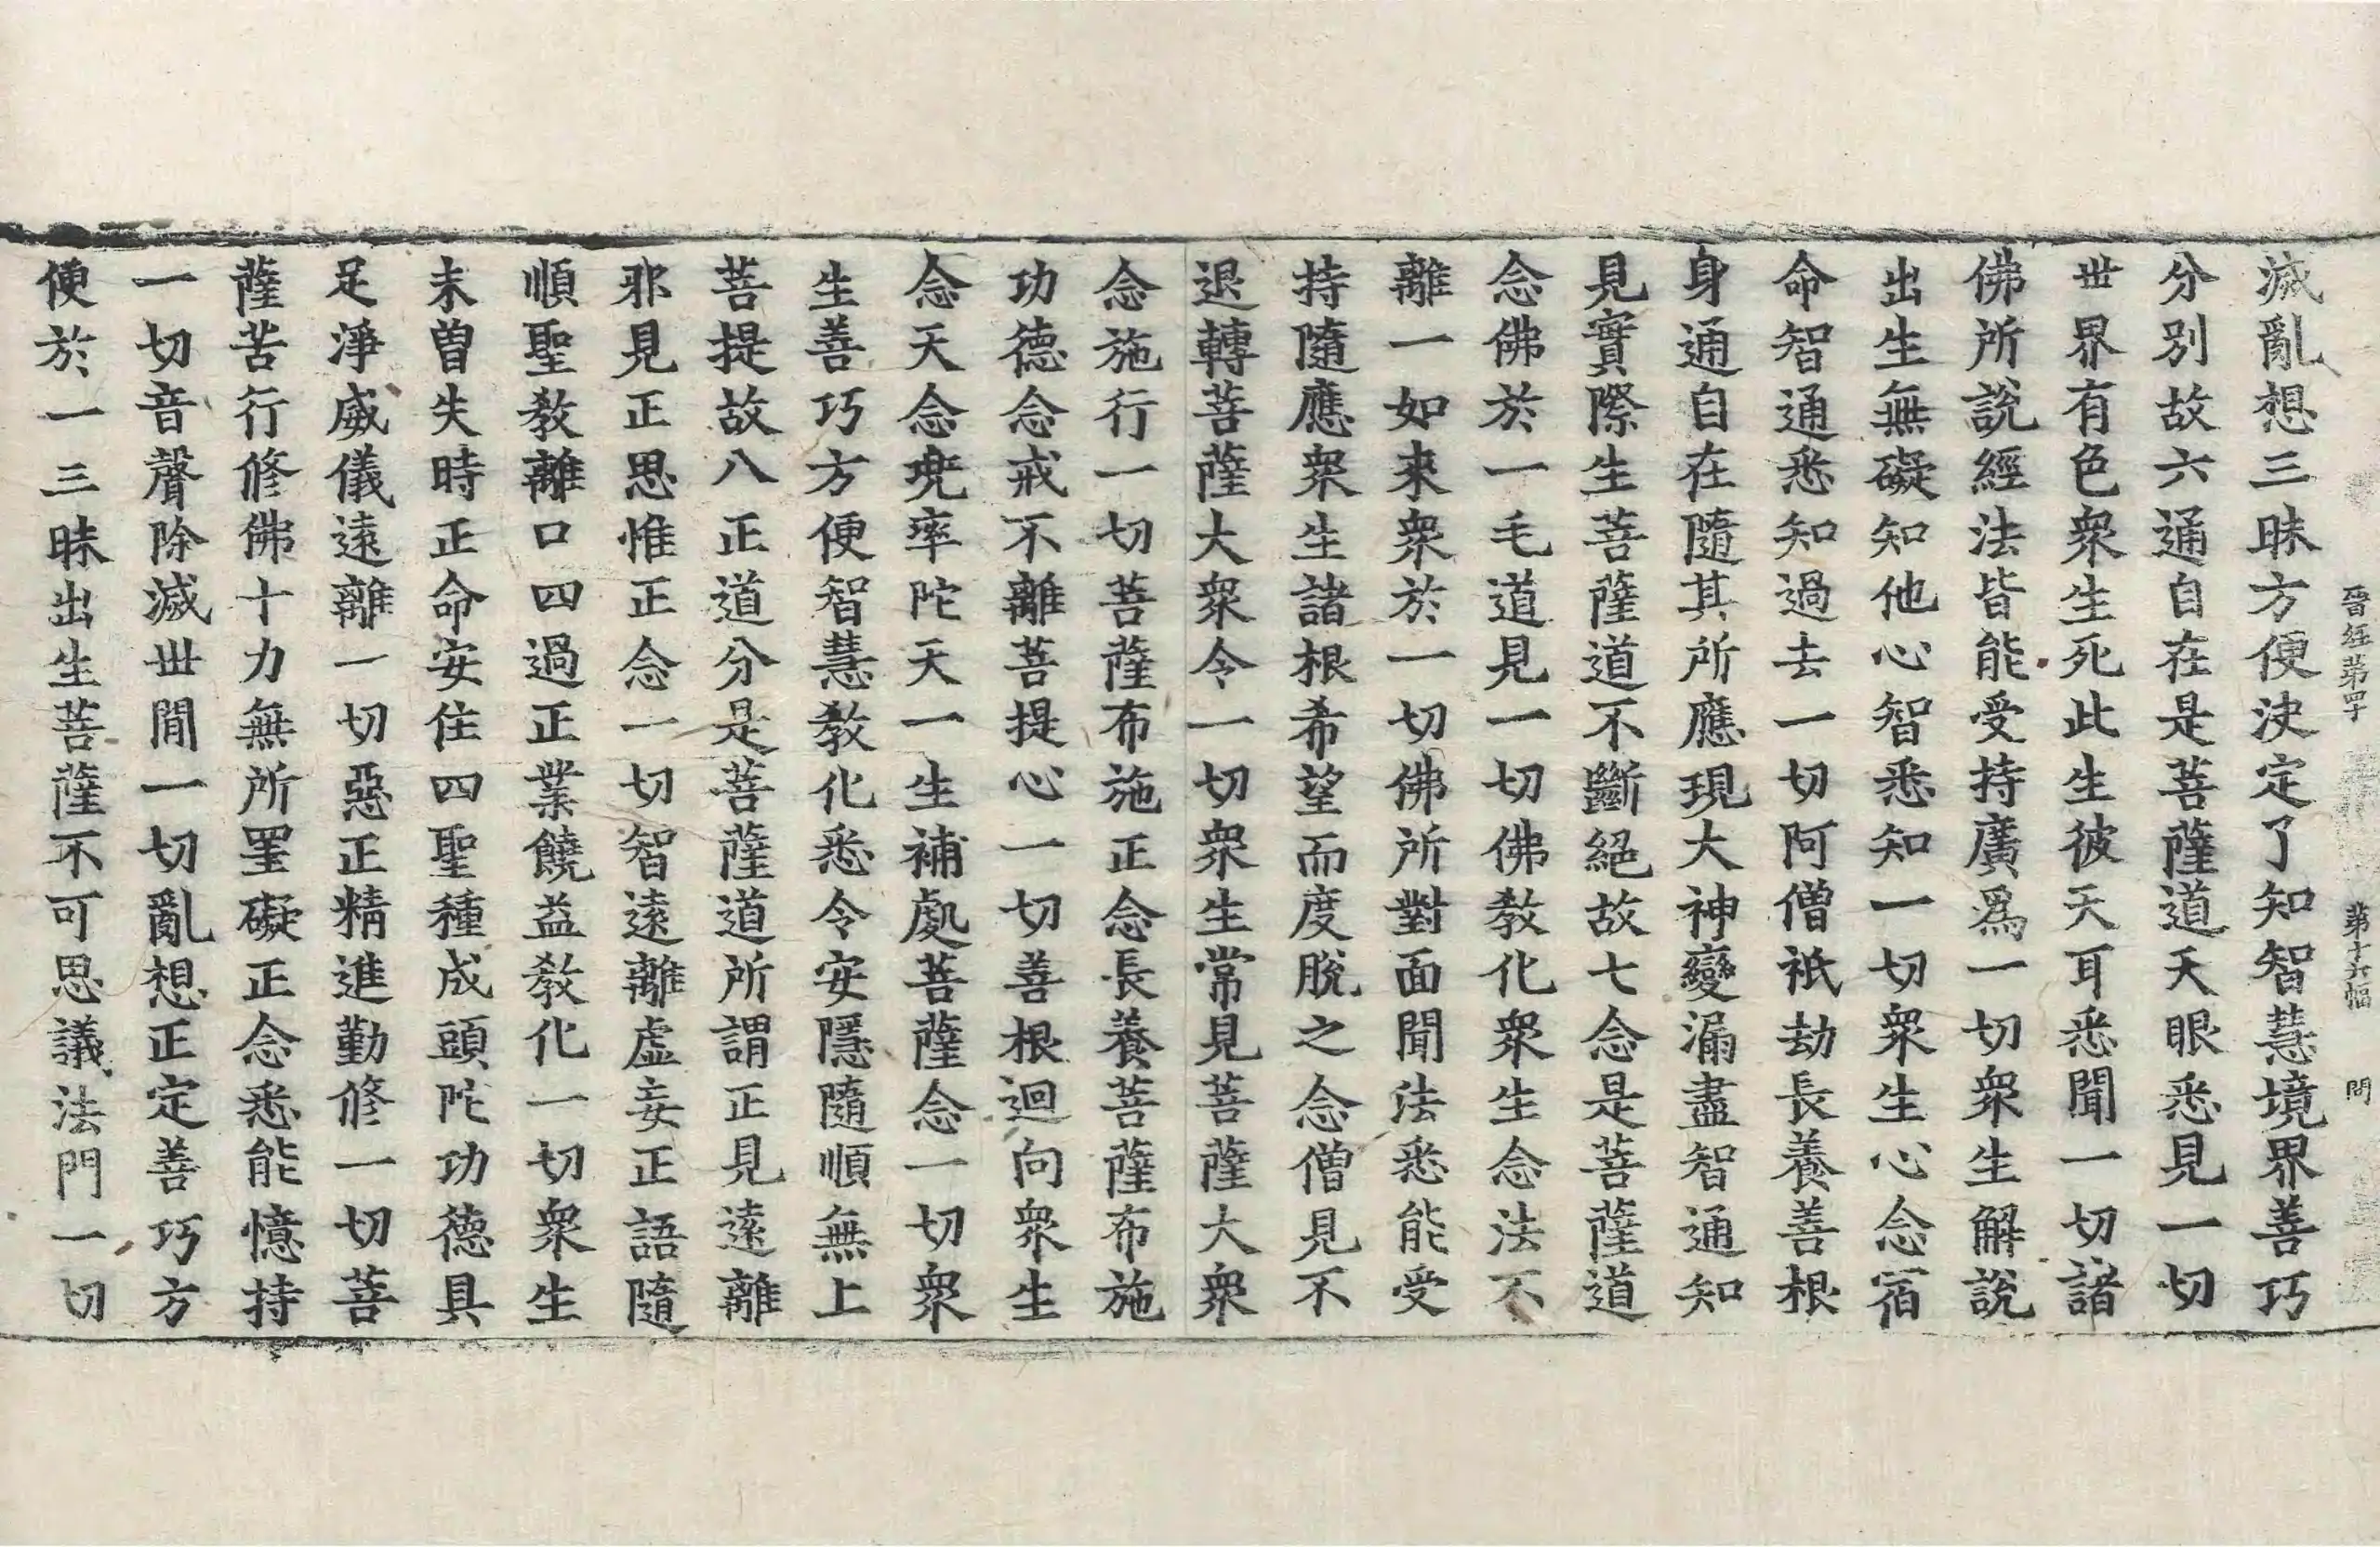 晉經第四十　第十六幅　問
滅亂想三昧方便決定了知智慧境界善巧
分別故六通自在是菩薩道天眼悉見一切
世界有色衆生死此生彼天耳悉聞一切諸
佛所說經法皆能受持廣爲一切衆生解說
出生無礙知他心智悉知一切衆生心念宿
命智通悉知過去一切阿僧祇劫長養善根
身通自在隨其所應現大神變漏盡智通知
見實際生菩薩道不斷絕故七念是菩薩道
念佛於一毛道見一切佛教化衆生念法不
離一如來衆於一切佛所對面聞法悉能受
持隨應衆生諸根希望而度脫之念僧見不
退轉菩薩大衆令一切衆生常見菩薩大衆
念施行一切菩薩布施正念長養菩薩布施
功德念戒不離菩提心一切善根迴向衆生
念天念兜率陀天一生補處菩薩念一切衆
生善巧方便智慧教化悉令安隱隨順無上
菩提故八正道分是菩薩道所謂正見遠離
邪見正思惟正念一切智遠離虛妄正語隨
順聖教離口四過正業饒益教化一切衆生
未曾失時正命安住四聖種成頭陀功德具
足淨威儀遠離一切惡正精進勤修一切菩
薩苦行修佛十力無所罣礙正念悉能憶持
一切音聲除滅世間一切亂想正定善巧方
便於一三昧出生菩薩不可思議法門一切